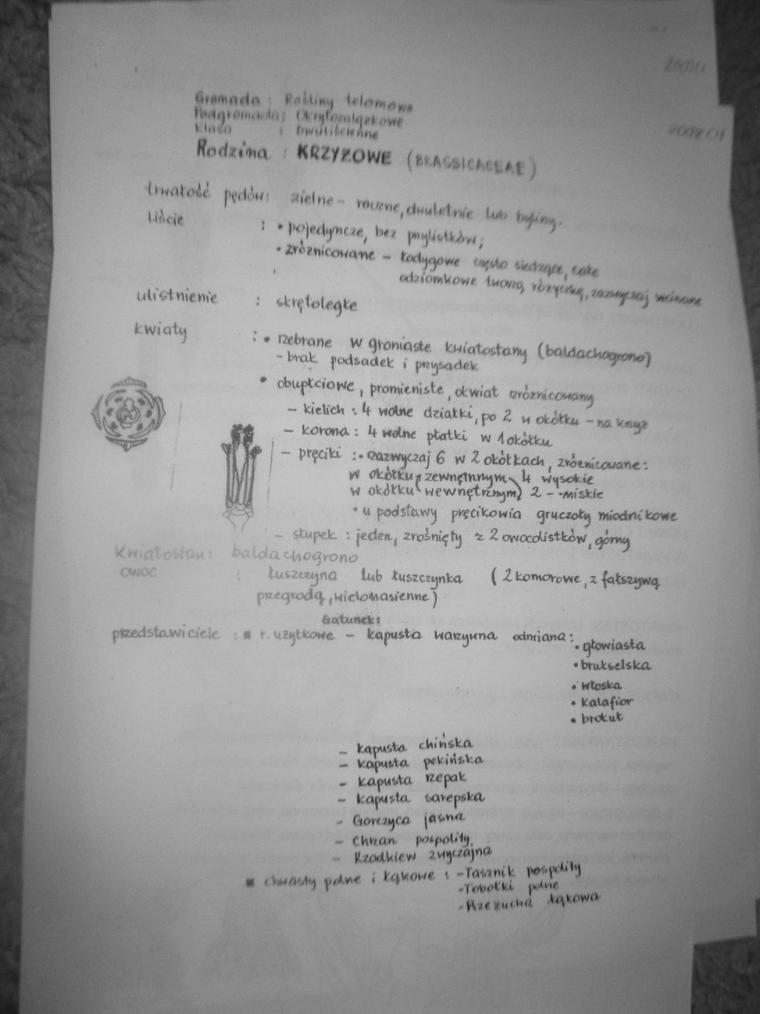 Gromada : Rośliny telomowe
Podgromada: Okrytozalążkowe
klasa : Dwuliścienne
Rodzina : KRZYŻOWE (BRASSICACEAE)
trwałość pędów: zielne - roczne, dwuletnie lub byliny.
liście : • pojedyncze, bez przylistków;
• zróżnicowane - łodygowe często siedzące, całe
odziomkowe tworzą różyczkę, zazwyczaj wcinane
ulistnienie : skrętoległe
kwiaty : • zebrane w groniaste kwiatostany (baldachogrono)
- brak podsadek i przysadek
• obupłciowe, promieniste, okwiat zróżnicowany
- kielich : 4 wolne działki, po 2 w okółku - na krzyż
- korona : 4 wolne płatki w 1 okółku
- pręciki : • zazwyczaj 6 w 2 okółkach, zróżnicowane:
w okółku zewnętrznym 4 wysokie
w okółku wewnętrznym 2 - niskie
• u podstawy pręcikowia gruczoły miodnikowe
- słupek : jeden, zrośnięty z 2 owocolistków, górny
Kwiatostan: baldachogrono
owoc : łuszczyna lub łuszczynka (2 komorowe, z fałszywą
przegrodą, wielonasienne)
Gatunek:
przedstawiciele : ■ r. użytkowe - kapusta warzywna odmiana:
• głowiasta
• brukselska
• włoska
• kalafior
• brokuł
- kapusta chińska
- kapusta pekińska
- kapusta rzepak
- kapusta sarepska
- Gorczyca jasna
- Chrzan pospolity
- Rzodkiew zwyczajna
■ chwasty polne i łąkowe : - Tasznik pospolity
- Tobołki polne
- Rzeżucha łąkowa